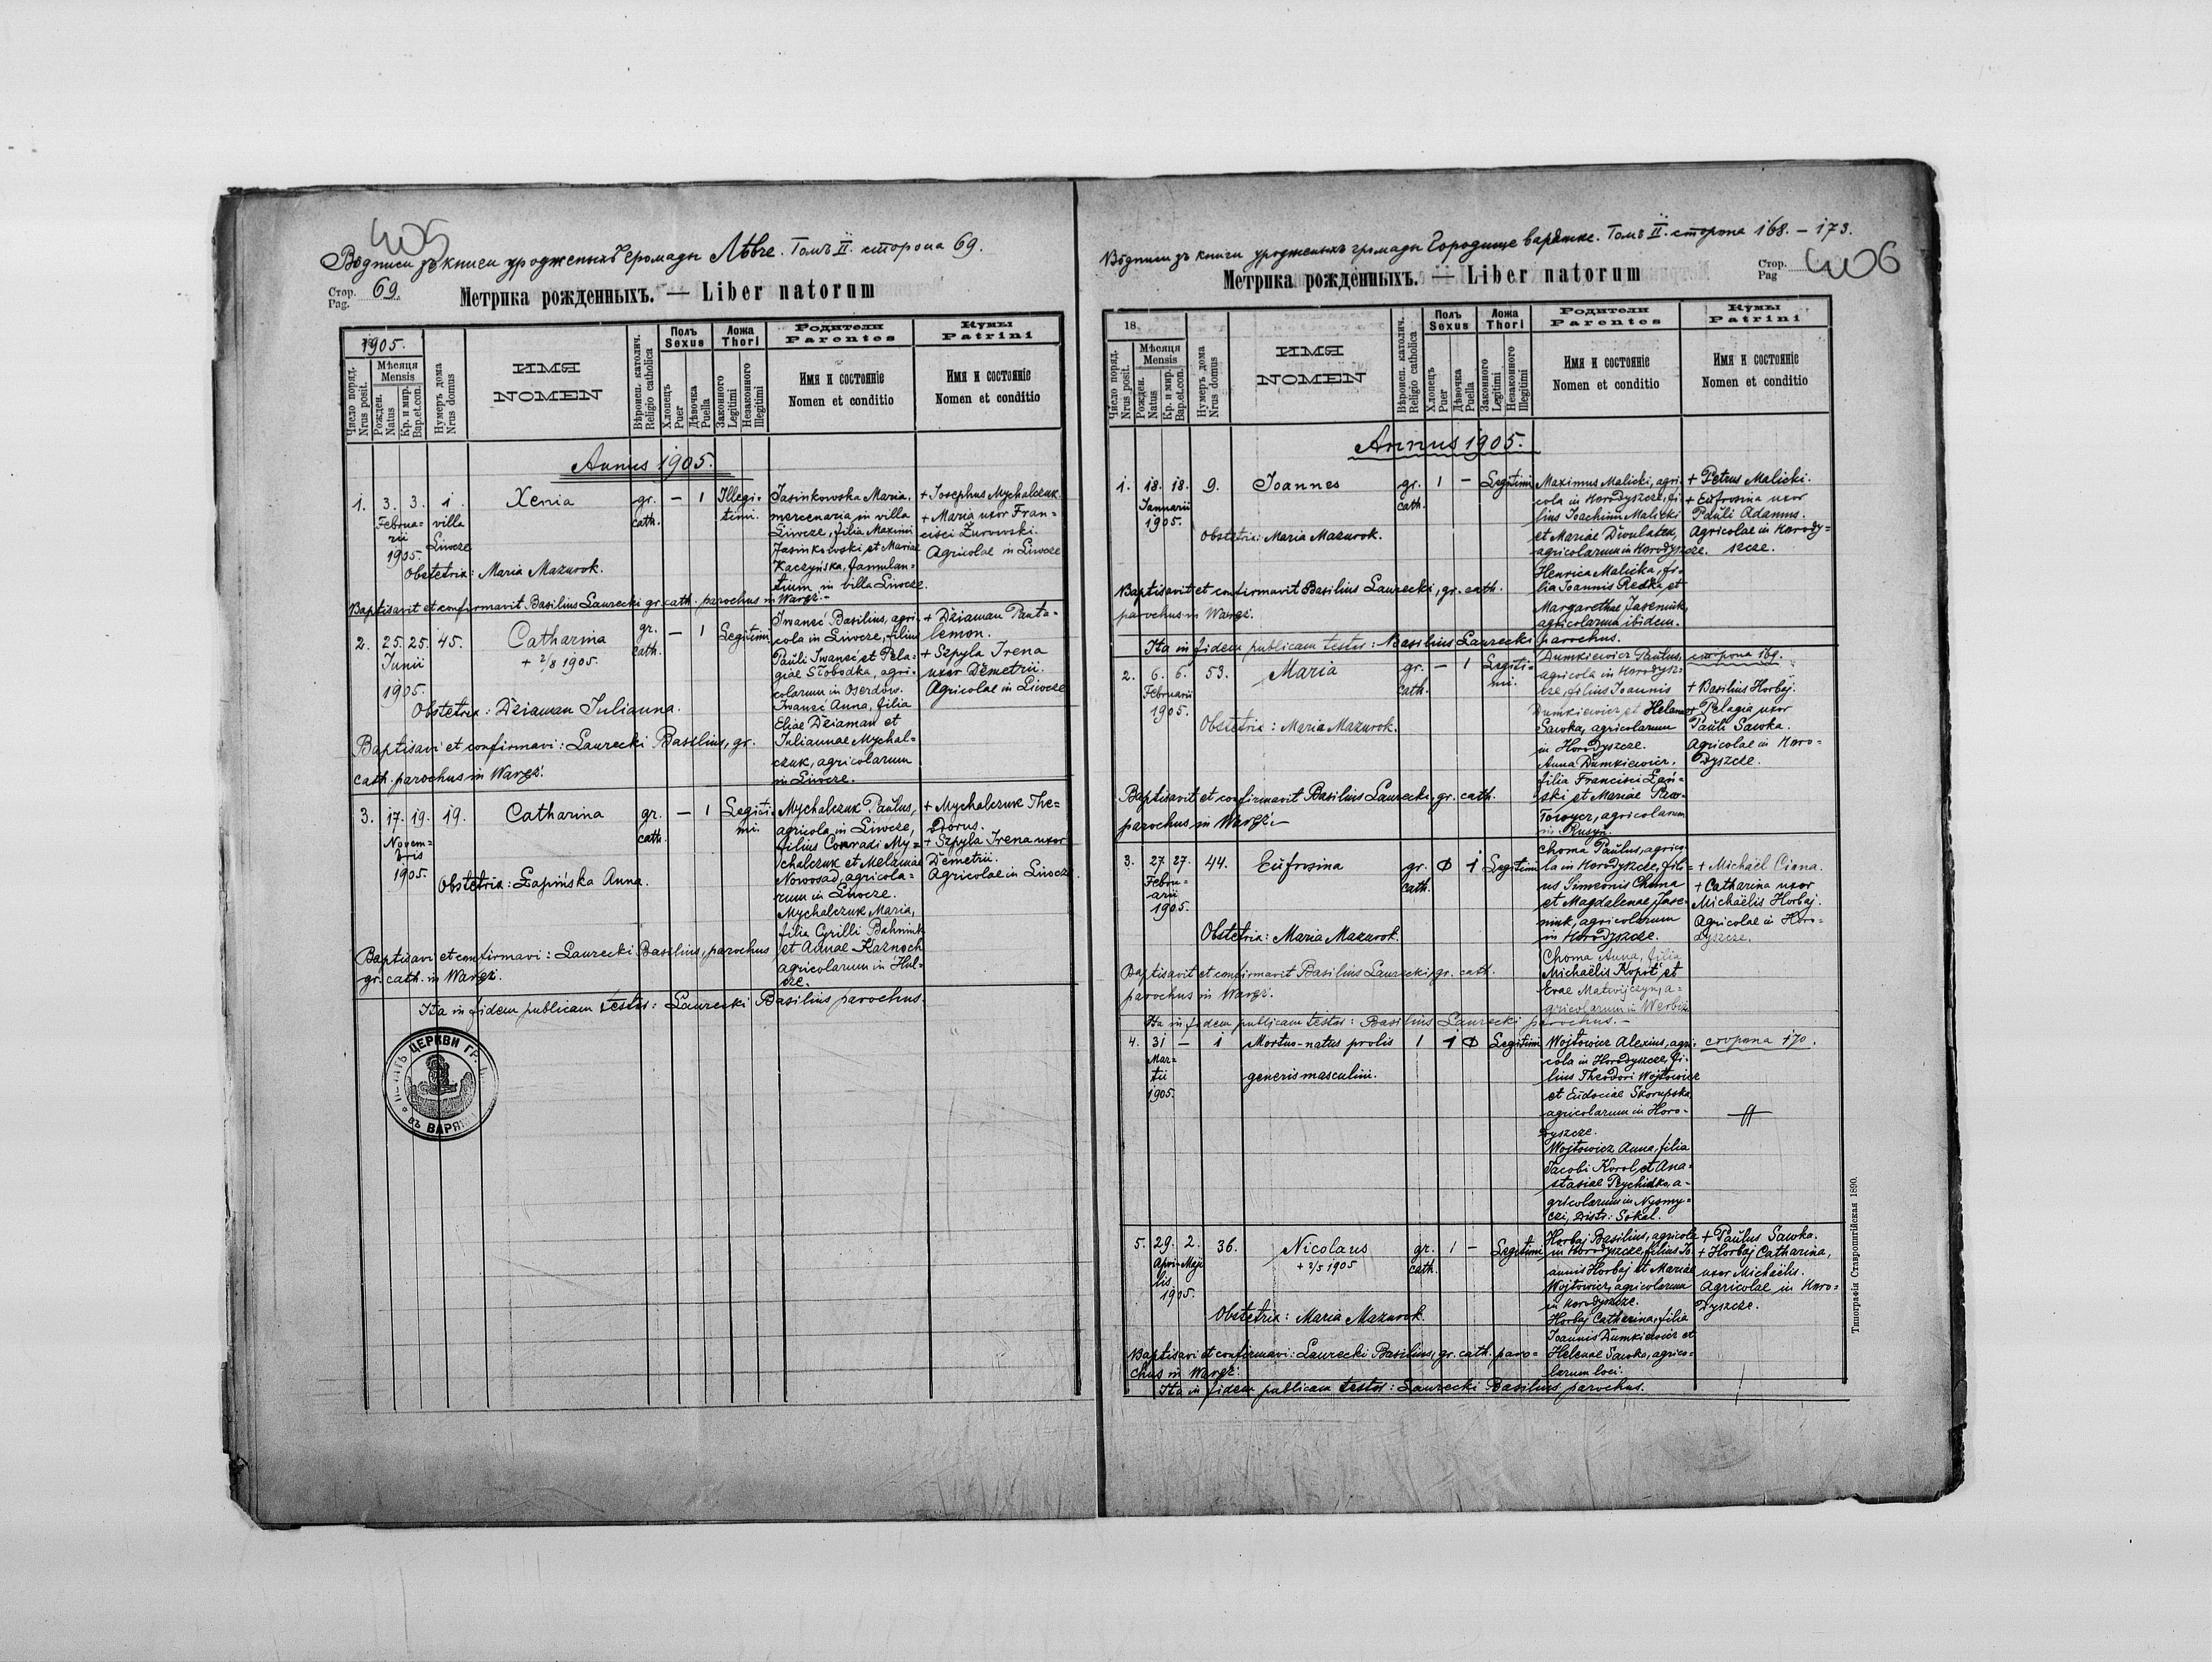 405
Вôдписи зъ книги уродженыхъ громады Лѣвче. Томъ II. сторона 69.
Стор. Pag. 69.
Метрика рожденныхъ. — Liber natorum
1905.
Число поряд. Nrus posit.
Мѣсяця Mensis
Рожден. Natus
Кр. и мир. Bap.et.con.
Нумеръ дома Nrus domus
ИМЯ
NOMEN
Вѣроисп. католич. Religio catholica
Полъ Sexus
Хлопецъ Puer
Дѣвочка Puella
Ложа Thori
Законного Legitimi
Незаконного Illegitimi
Родители
Parentes
Имя и состоянiе
Nomen et conditio
Кумы
Patrini
Имя и состоянiе
Nomen et conditio
Annus 1905.
1. 3. 3. Februarii 1905. 1. villa Liwcze
Xenia
gr. cath. — 1 Illegitimi.
Jasinkowska Maria,
mercenaria in villa
Liwcze, filia Maximi
Jasinkowski et Mariae
Kaczyńska, famulan=
tium in villa Liwcze.
+ Josephus Mychalczuk.
+ Maria uxor Fran=
cisci Żurowski.
Agricolae in Liwcze
Obstetrix: Maria Mazurok.
Baptisavit et confirmavit Basilius Laurecki gr. cath. parochus in Waręż.
2. 25. 25. Junii 1905. 45.
Catharina
+ 2/8 1905.
gr. cath. — 1 Legitimi
Iwanać Basilius, agri=
cola in Liwcze, filius
Pauli Iwanać et Pela=
giae Słobodka, agri=
colarum in Oserdów.
Iwanać Anna, filia
Eliae Dziaman et
Juliannae Mychal=
czuk, agricolarum
in Liwcze.
+ Dziaman Panta=
lemon.
+ Szpyla Irena
uxor Demetrii.
Agricolae in Liwcze
Obstetrix: Dziaman Julianna.
Baptisavi et confirmavi: Laurecki Basilius, gr.
cath. parochus in Waręż.
3. 17. 19. Novem= bris 1905. 19.
Catharina
gr. cath. — 1 Legitimi.
Mychalczuk Paulus,
agricola in Liwcze,
filius Conradi My=
chalczuk et Melaniae
Nowosad, agricola=
rum in Liwcze.
Mychalczuk Maria,
filia Cyrilli Bahniuk
et Annae Kaznoch
agricolarum in Hul=
cze.
+ Mychalczuk The=
odorus.
+ Szpyla Irena uxor
Demetrii.
Agricolae in Liwcze
Obstetrix: Łapińska Anna.
Baptisavi et confirmavi: Laurecki Basilius, parochus
gr. cath. in Waręż.
Ita in fidem publicam testor: Laurecki Basilius parochus.
ПЕЧАТЬ ЦЕРКВИ ГР.
въ ВАРЯЖ
Вôдписи зъ книги уродженыхъ громады Городище варяжске. Томъ II. сторона 168. – 173.
Стор. Pag 406
Метрика рожденныхъ. — Liber natorum
18
Число поряд. Nrus posit.
Мѣсяця Mensis
Рожден. Natus
Кр. и мир. Bap.et.con.
Нумеръ дома Nrus domus
ИМЯ
NOMEN
Вѣроисп. католич. Religio catholica
Полъ Sexus
Хлопецъ Puer
Дѣвочка Puella
Ложа Thori
Законного Legitimi
Незаконного Illegitimi
Родители
Parentes
Имя и состоянiе
Nomen et conditio
Кумы
Patrini
Имя и состоянiе
Nomen et conditio
Annus 1905.
1. 18. 18. Januarii 1905. 9.
Joannes
gr. cath. 1 — Legitimi
Maximus Malicki, agri=
cola in Horodyszcze, fi=
lius Joachimi Malicki
et Mariae Dwulatek,
agricolarum in Horodyszcze.
Henrica Malicka, fi=
lia Joannis Redka, et
Margarethae Jaseniuk,
agricolarum ibidem.
+ Petrus Malicki.
+ Eufrosina uxor
Pauli Adamus.
Agricolae in Horody=
szcze.
Obstetrix: Maria Mazurok.
Baptisavit et confirmavit Basilius Laurecki, gr. cath.
parochus in Waręż.
Ita in fidem publicam testor: Basilius Laurecki parochus.
2. 6. 6. Februarii 1905. 53.
Maria
gr. cath. — 1 Legiti= mi.
Dumkiewicz Paulus,
agricola in Horodysz=
cze, filius Joannis
Dumkiewicz et Helenae
Sawka, agricolarum
in Horodyszcze.
Anna Dumkiewicz,
filia Francisci Łań=
ski et Mariae Paw=
łowycz, agricolarum
in Rusyn.
сторона 169.
+ Basilius Horbaj.
+ Pelagia uxor
Pauli Sawka.
Agricolae in Horo=
dyszcze.
Obstetrix: Maria Mazurok.
Baptisavit et confirmavit Basilius Laurecki, gr. cath.
parochus in Waręż.
3. 27. 27. Febru= arii 1905. 44.
Eufrosina
gr. cath. 1 Legitimi
Choma Paulus, agrico=
la in Horodyszcze, fili=
us Simeonis Choma
et Magdalenae Jase=
niuk, agricolarum
in Horodyszcze.
Choma Anna, filia
Michaëlis Kopot et
Evae Matwijczyn, a=
gricolarum in Werbiż
+ Michaël Ciona.
+ Catharina uxor
Michaëlis Horbaj.
Agricolae in Horo=
dyszcze.
Obstetrix: Maria Mazurok.
Baptisavit et confirmavit Basilius Laurecki, gr. cath.
parochus in Waręż.
Ita in fidem publicam testor: Basilius Laurecki parochus.
4. 31 — Mar= tii 1905. 1
Mortuo-natus prolis
generis masculini.
1 Legitimi
Wojtowicz Alexius, agri=
cola in Horodyszcze, fi=
lius Theodori Wojtowicz
et Eudociae Skorupska
agricolarum in Horo=
dyszcze.
Wojtowicz Anna, filia
Jacobi Korol, et Ana=
stasiae Prychidko, a=
gricolarum in Nysmy=
czi, Distr: Sokal.
сторона 170.
5. 29. 2. Apri= lis Maji 1905. 36.
Nicolaus
+ 2/5 1905
gr. cath. 1 — Legitimi
Horbaj Basilius, agricola
in Horodyszcze, filius Jo=
annis Horbaj et Mariae
Wojtowicz, agricolarum
in Horodyszcze.
Horbaj Catharina, filia
Joannis Dumkiewicz et
Helenae Sawka, agrico=
larum loci.
+ Paulus Sawka.
+ Horbaj Catharina,
uxor Michaëlis.
Agricolae in Horo=
dyszcze.
Obstetrix: Maria Mazurok.
Baptisavi et confirmavi: Laurecki Basilius, gr. cath. paro=
chus in Waręż.
Ita in fidem publicam testor: Laurecki Basilius parochus.
Типографiя Ставропигiйская 1890.